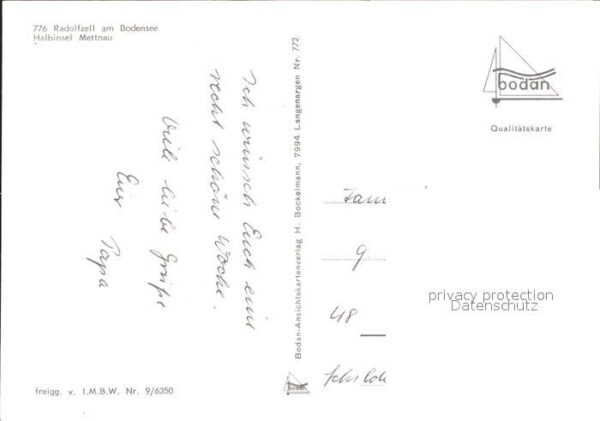 776 Radolfzell am Bodensee
Halbinsel Mettnau
Ich wünsch Euch eine
recht schöne Woche.
Viele liebe Grüße
Euer Papa
freigg. v. I.M.B.W. Nr. 9/6350
Bodan-Ansichtskartenverlag H. Bockelmann, 7994 Langenargen Nr. 772
bodan
Qualitätskarte
Fam
9
48
privacy protection
Datenschutz